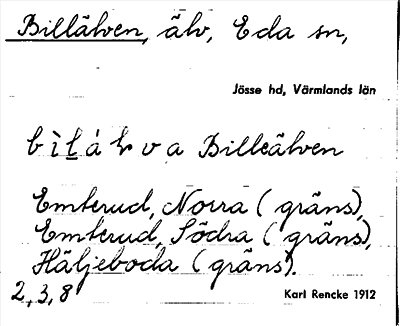 Billälven, älv, Eda sn,
Jösse hd, Värmlands län
bìl̲áɽva Billeälven
Emterud, Norra (gräns),
Emterud, Södra (gräns),
Häljeboda (gräns).
2, 3, 8
Karl Rencke 1912